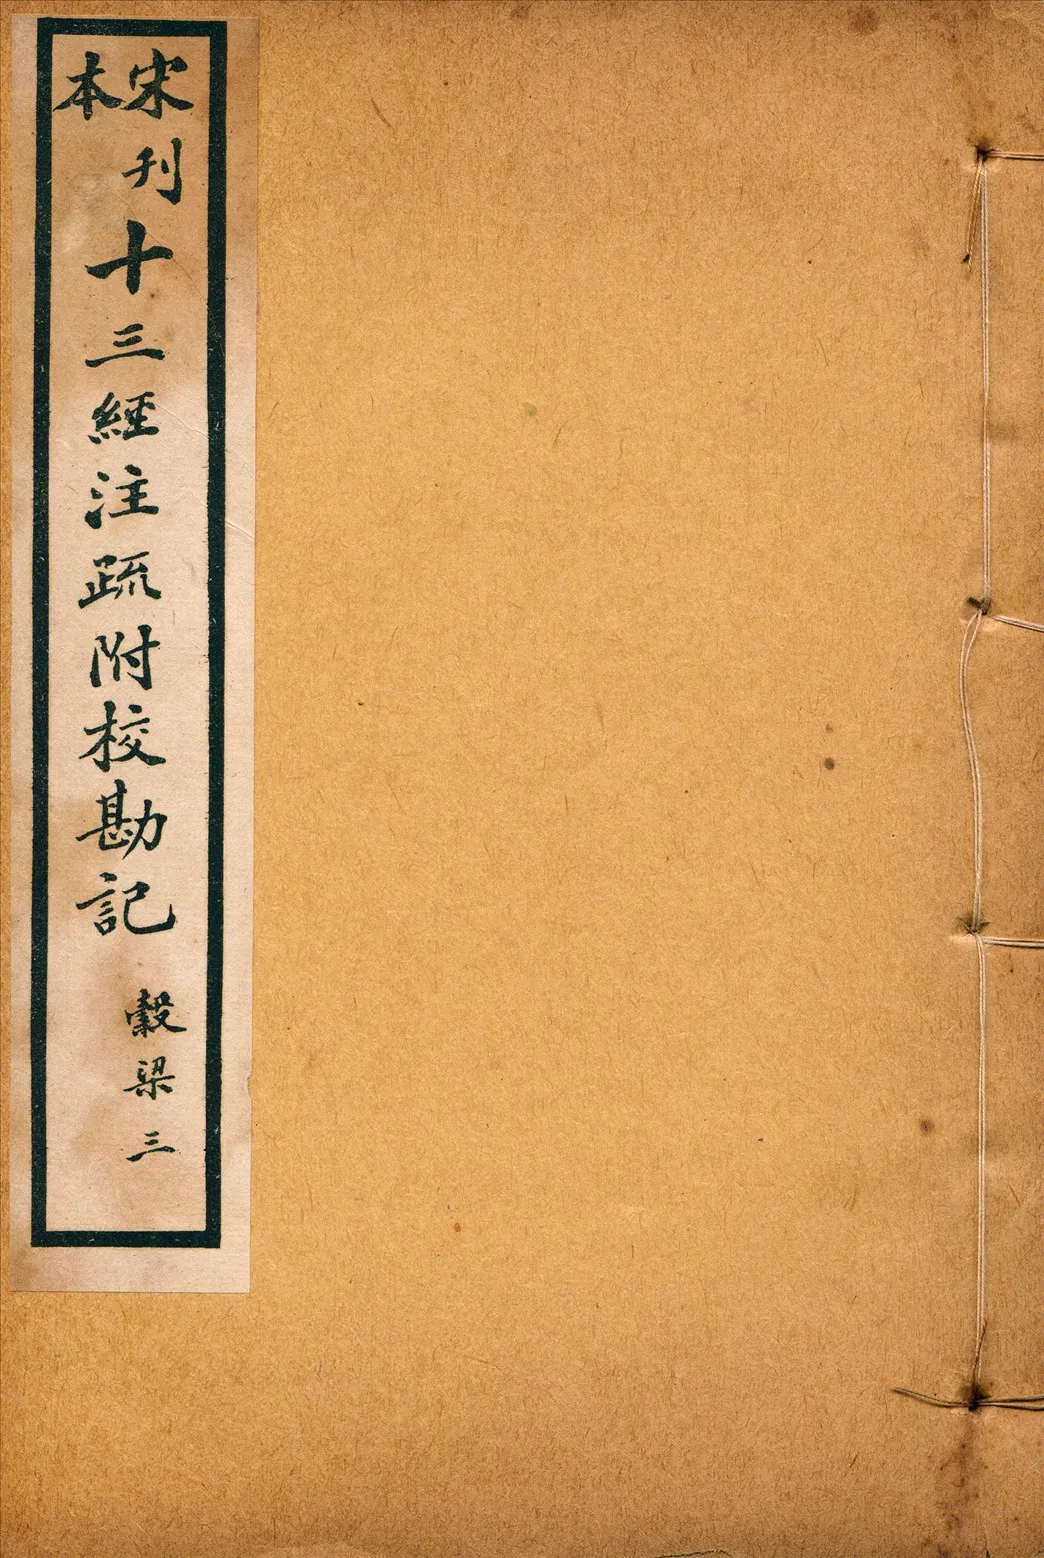 宋刊本十三經注疏附校勘記
穀梁 三